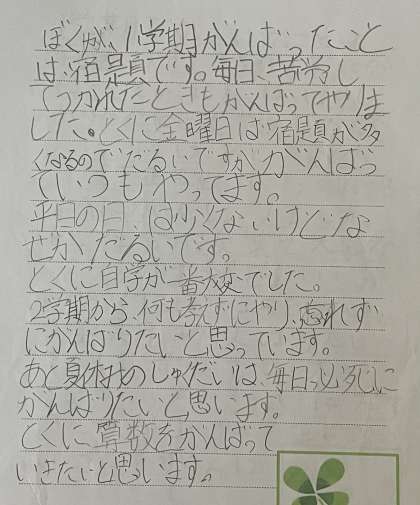 ぼくが、1学期がんばったこと
は、宿題です。毎日、苦労し
てつかれたときもがんばってやりま
した。とくに金曜日は宿題が多
くなるのでだるいですががんばっ
ていつもやってます。
平日の日は少くないけどな
ぜかだるいです。
とくに自学が一番大変でした。
2学期から、何も考えずにやり、忘れず
にがんばりたいと思っています。
あと夏休みのしゅくだいは、毎日必死に
がんばりたいと思います。
とくに算数をがんばって
いきたいと思います。